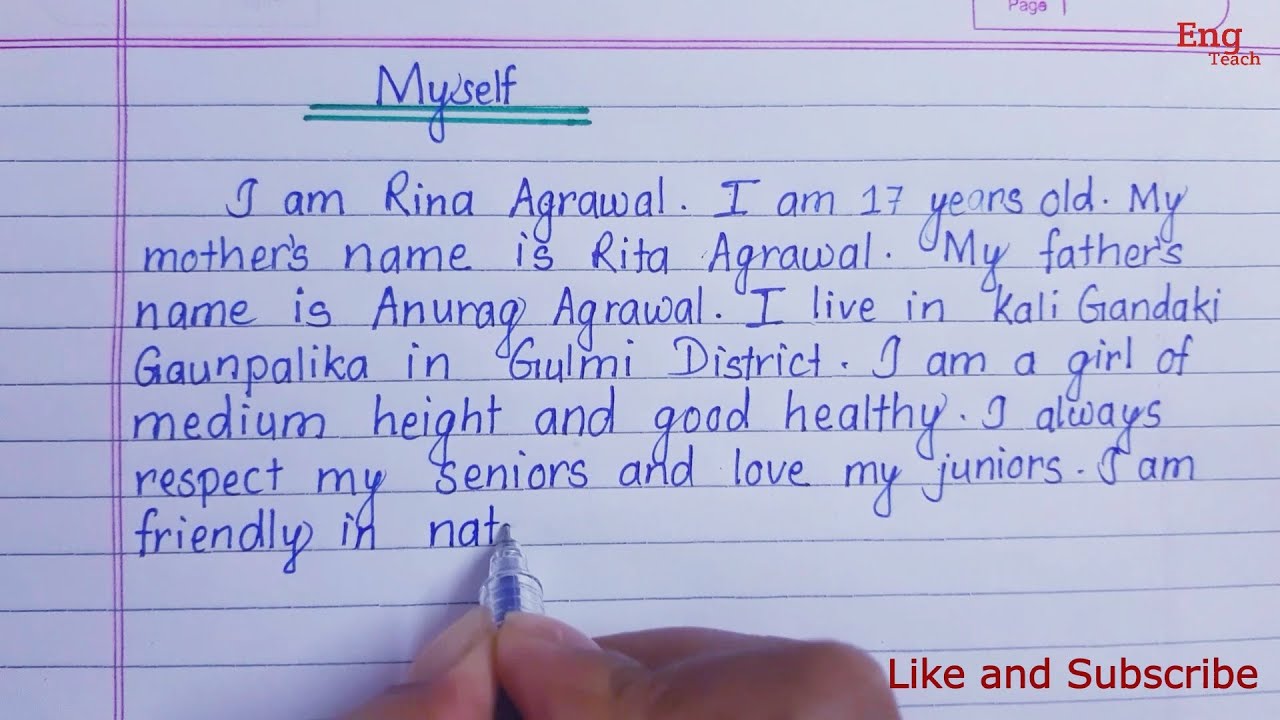 Page
Eng
Teach
Myself
I am Rina Agrawal. I am 17 years old. My
mother's name is Rita Agrawal. My father's
name is Anurag Agrawal. I live in Kali Gandaki
Gaunpalika in Gulmi District. I am a girl of
medium height and good healthy. I always
respect my seniors and love my juniors. I am
friendly in nat
Like and Subscribe